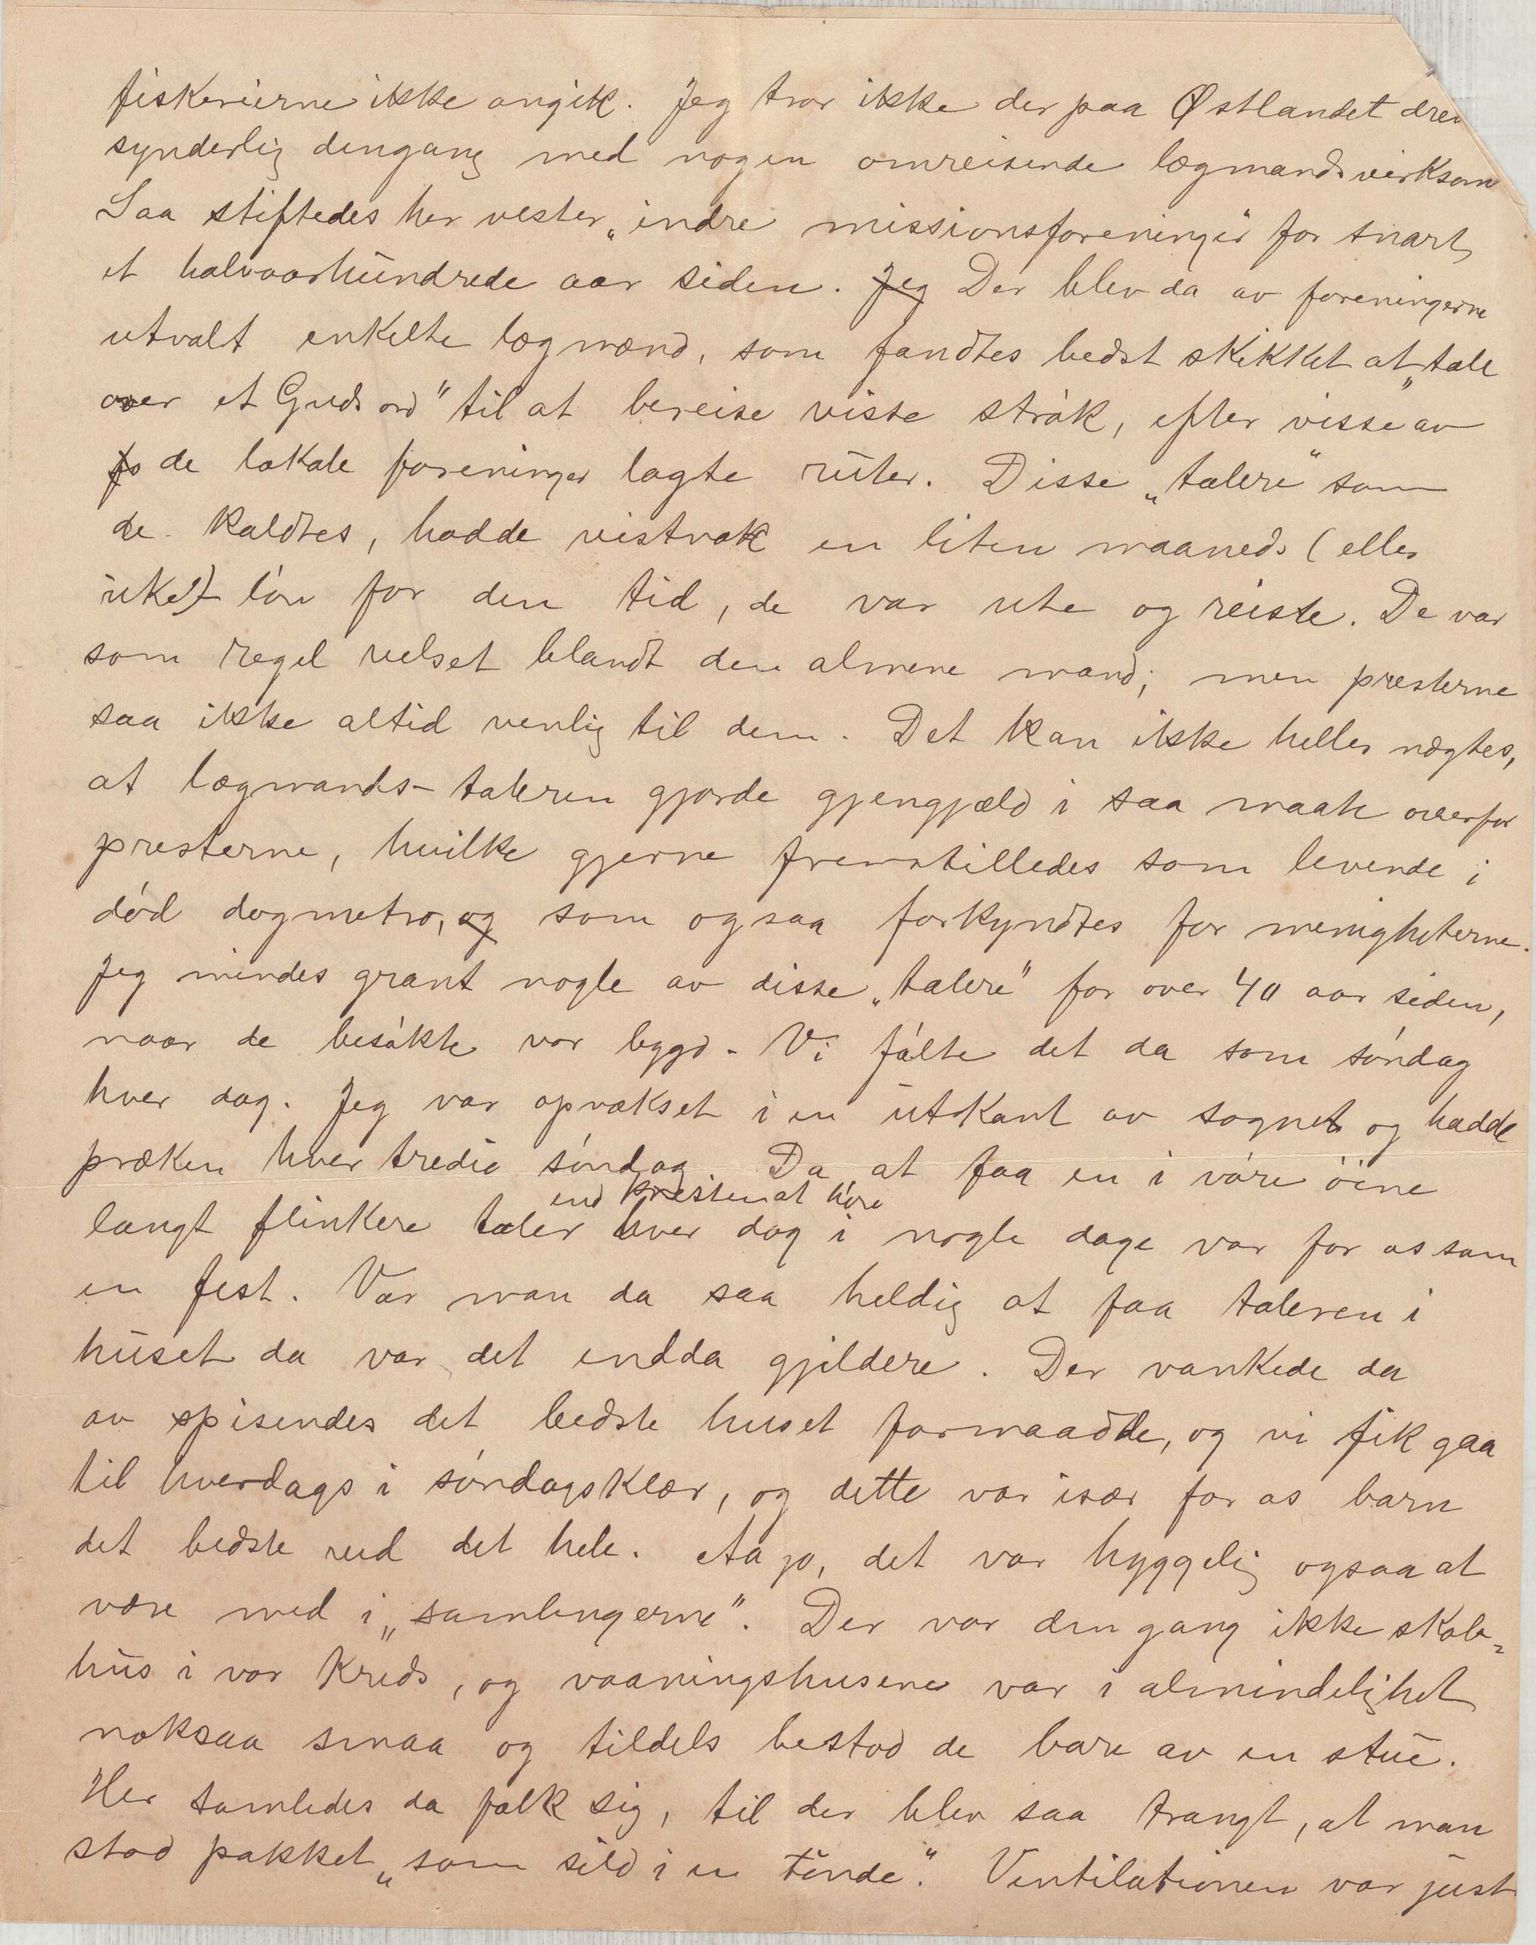 fiskerierne ikke angik. Jeg tror ikke der paa Østlandet drev
synderlig dengang med nogen omreisende lægmandsvirksom
Saa stiftedes her vester „indre missionsforeninger for snart
et halvaarhundrede aar siden. Jeg Der blev da av foreningerne
utvalt enkelte lægmænd, som fandtes bedst skikket at „tale
over et Guds ord" til at bereise visse strøk, efter visse av
fo de lokale foreninger lagte ruter. Disse „talere" som
de kaldtes, hadde vistnok en liten maaneds (eller
uke) løn for den tid, de var ute og reiste. De var
som regel velset blandt den almene mand; men presterne
saa ikke altid venlig til dem. Det kan ikke heller nægtes,
at lægmands-taleren gjorde gjengjæld i saa maate overfor
presterne, hvilke gjerne fremstilledes som levende i
død dogmetro, og som ogsaa forkyndtes for menigheterne.
Jeg mindes grant nogle av disse „talere" for over 40 aar siden,
naar de besøkte vor bygd. Vi følte det da som søndag
hver dag. Jeg var opvokset i en utkant av sognet og hadde
præken hver tredie søndag. Da at faa en i vore øine
end presten at høre
langt flinkere taler hver dag i nogle dage var for os som
en fest. Var man da saa heldig at faa taleren i
huset da var det endda gjildere. Der vankede da
av spisendes det bedste huset formaadde, og vi fik gaa
til hverdags i søndagsklær, og dette var især for os barn
det bedste ved det hele. Aa jo, det var hyggelig ogsaa at
være med i „samlingerne". Der var den gang ikke skole-
hus i vor kreds, og vaaningshusene var i almindelighet
noksaa smaa og tildels bestod de bare av en stue.
Her samledes da folk sig, til der blev saa trangt, at man
stod pakket „som sild i en tønde". Ventilationen var just